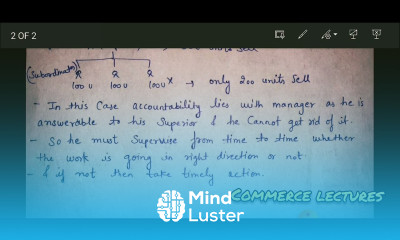 2 OF 2
(Subordinate)
100 U 100 U 100 U X → only 200 units sell
- In this Case accountability lies with manager as he is
answerable to his Superior & he Cannot get rid of it.
- So he must Supervise from time to time whether
the work is going in right direction or not
- & if not then take timely action.
COMMERCE LECTURES
Mind
Luster